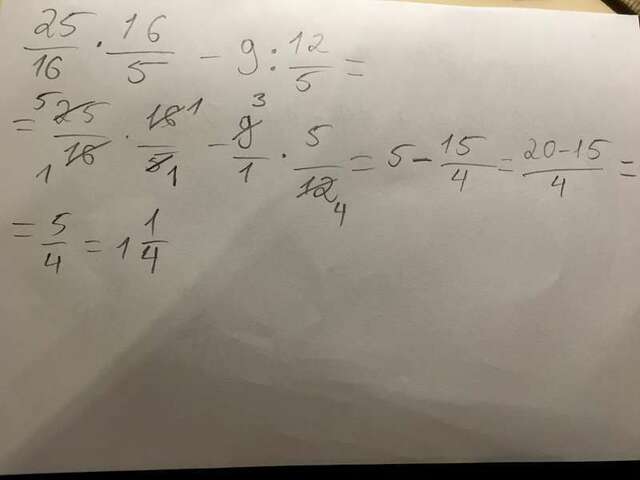 25/16 · 16/5 - 9 : 12/5 =
= 5 25/16 1 · 16 1/5 1 - 9 3/1 · 5/12 4 = 5 - 15/4 = 20-15/4 =
= 5/4 = 1 1/4